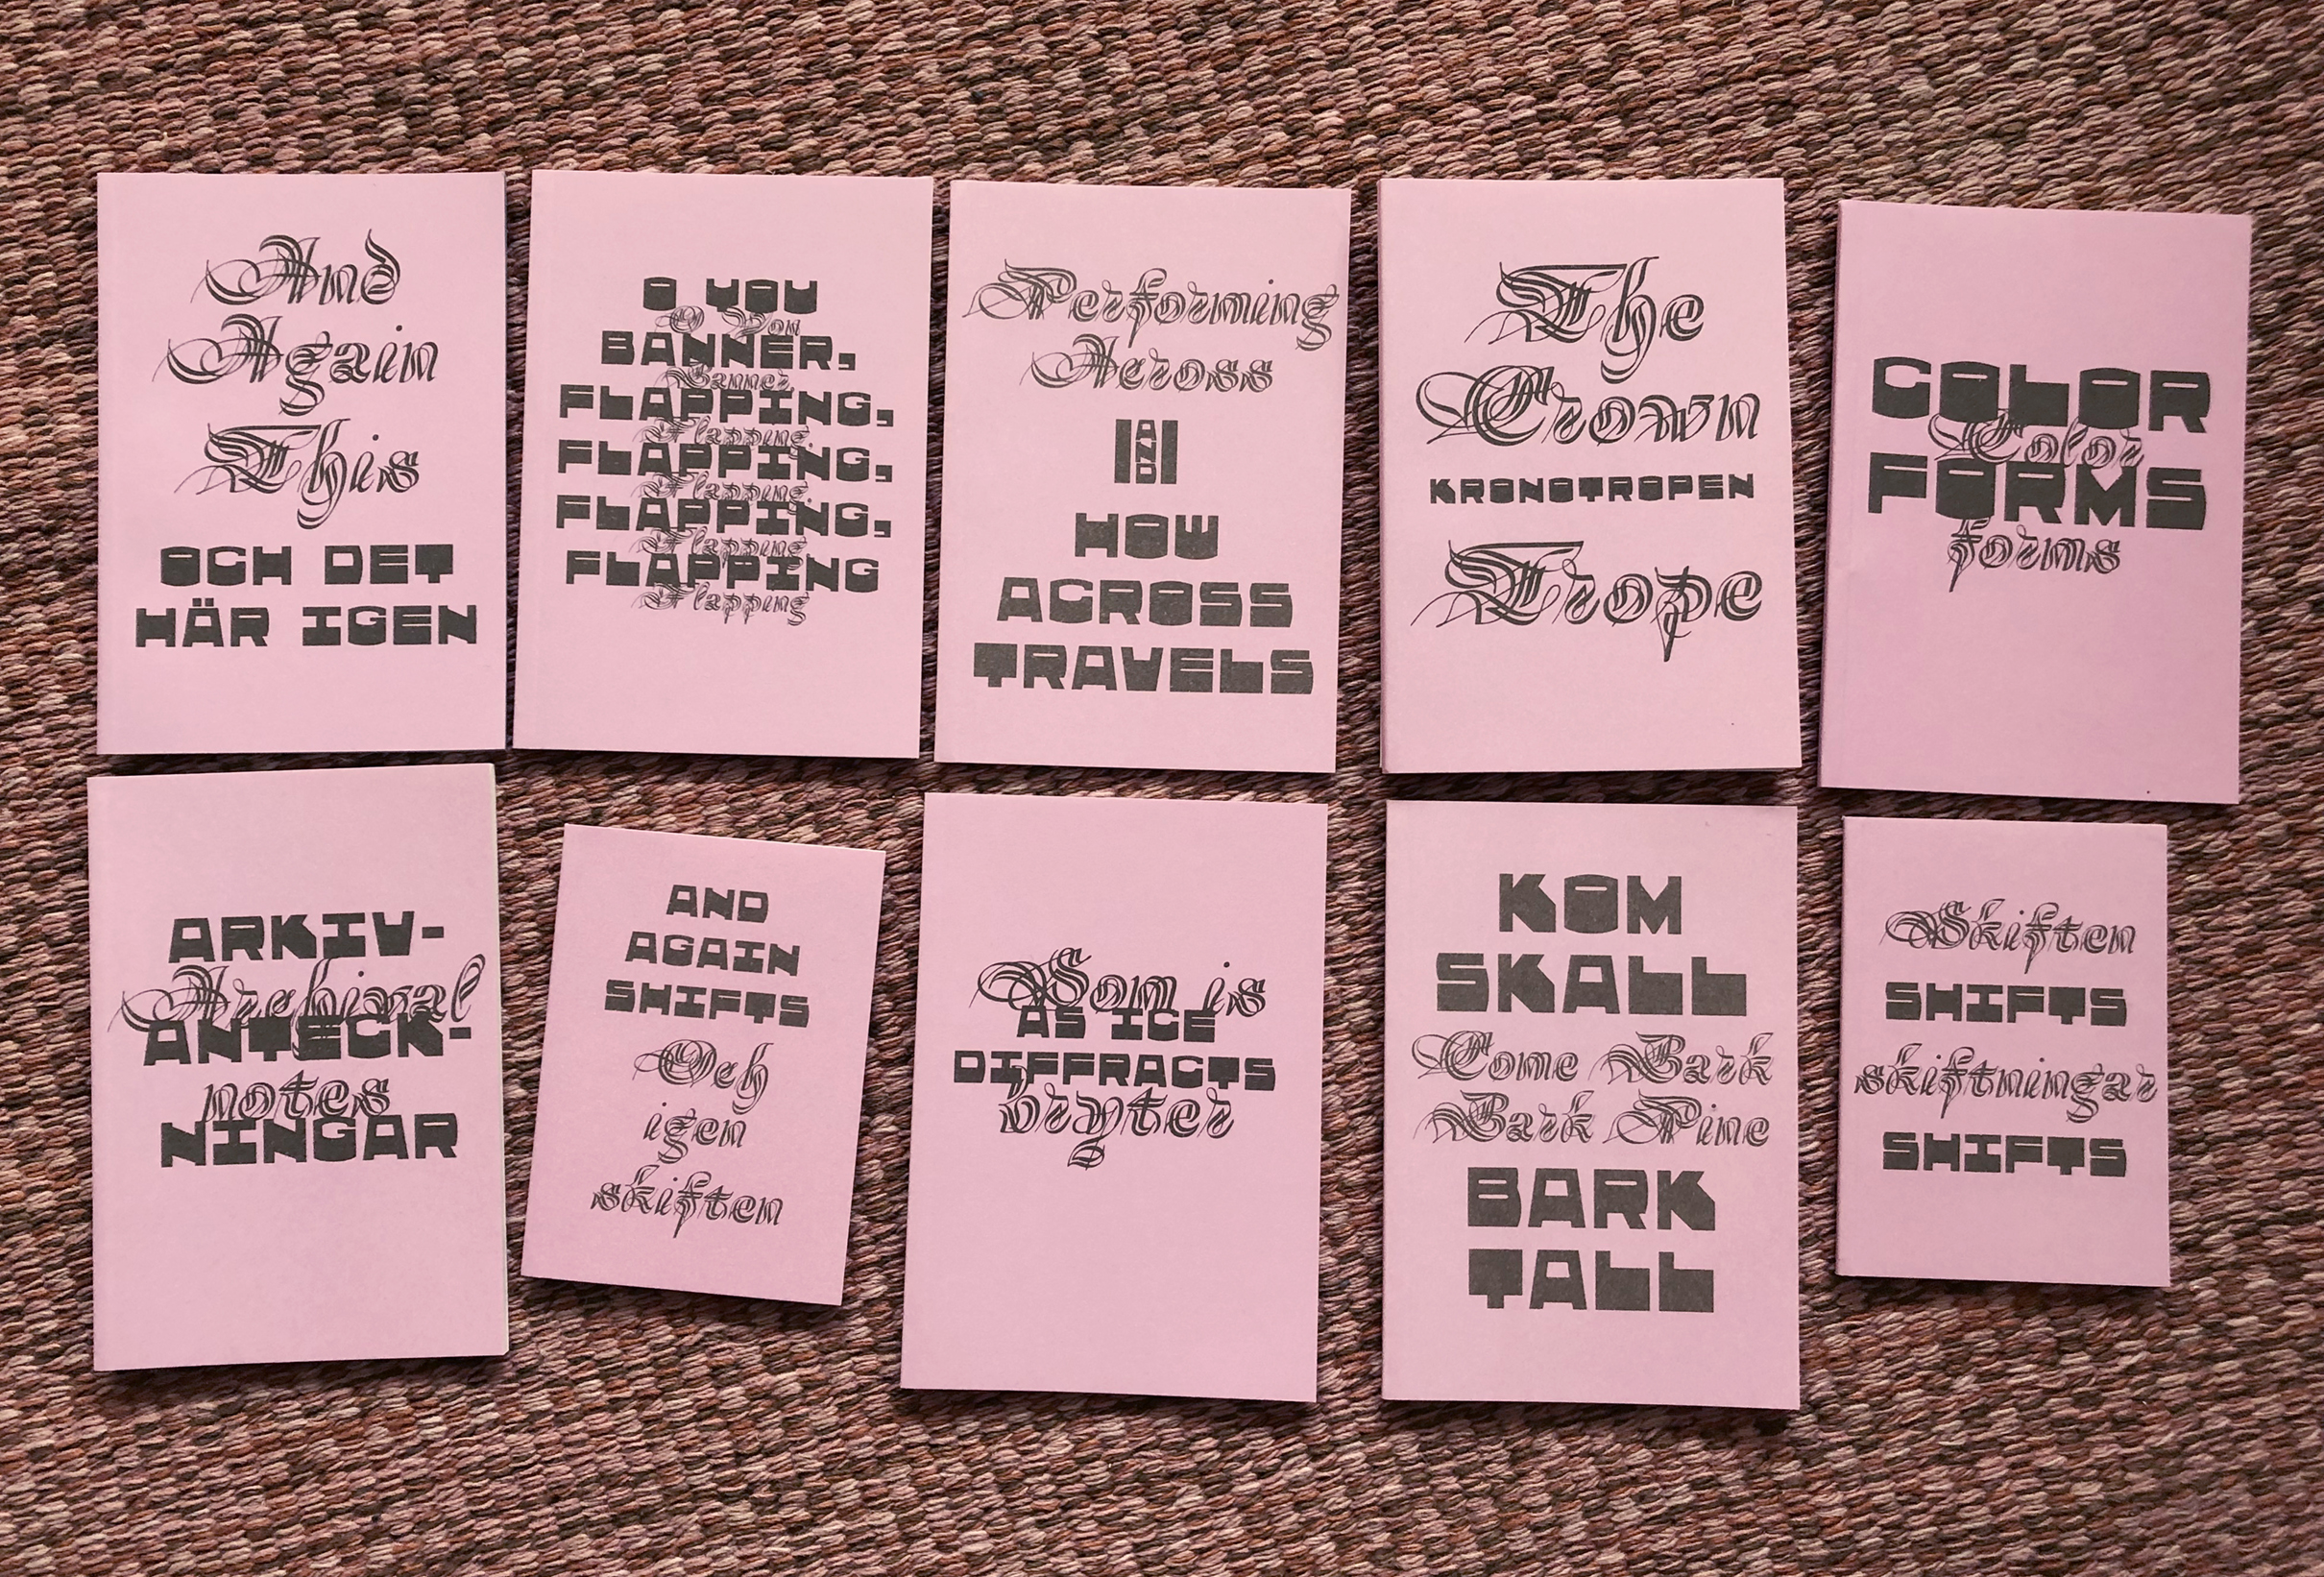 And
Again
This
OCH DET
HÄR IGEN
O YOU
O You
BANNER,
Banner
FLAPPING,
Flapping
FLAPPING,
Flapping
FLAPPING,
Flapping
FLAPPING
Flapping
Performing
Across
AND
HOW
ACROSS
TRAVELS
The
Crown
KRONOTROPEN
Trope
COLOR
Color
FORMS
forms
ARKIV-
Archival
ANTECK-
notes
NINGAR
AND
AGAIN
SHIFTS
Och
igen
skiften
Som is
AS ICE
DIFFRACTS
bryter
KOM
SKALL
Come Bark
Bark Pine
BARK
TALL
Skiften
SHIFTS
skiftningar
SHIFTS